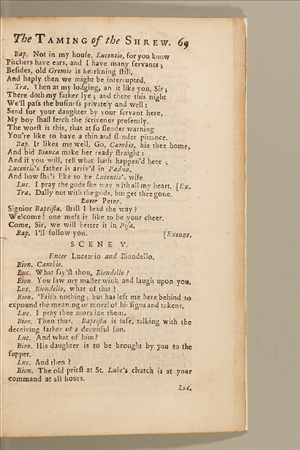 The TAMING of the SHREW. 69
Bap. Not in my house, Lucentio, for you know
Pitchers have ears, and I have many servants;
Besides, old Gremio is heark'ning still,
And haply then we might be interrupted.
Tra. Then at my lodging, an it like you, Sir;
There doth my father lye; and there this night
We'll pass the business privately and well:
Send for your daughter by your servant here,
My boy shall fetch the scrivener presently.
The worst is this, that at so slender warning
You're like to have a thin and slender pittance.
Bap. It likes me well. Go, Cambio, hie thee home,
And bid Bianca make her ready straight:
And if you will, tell what hath happen'd here;
Lucentio's father is arriv'd in Padua,
And how she's like to be Lucentio's wife.
Luc. I pray the gods she may with all my heart. [Ex.
Tra. Dally not with the gods, but get thee gone.
Enter Peter.
Signior Baptista, shall I lead the way?
Welcome! one mess is like to be your cheer.
Come, Sir, we will better it in Pisa.
Bap. I'll follow you. [Exeunt.
SCENE V.
Enter Lucentio and Biondello.
Bion. Cambio.
Luc. What say'st thou, Biondello?
Bion. You saw my master wink and laugh upon you.
Luc. Biondello, what of that?
Bion. 'Faith nothing; but has left me here behind to
expound the meaning or moral of his signs and tokens.
Luc. I pray thee moralize them.
Bion. Then thus. Baptista is safe, talking with the
deceiving father of a deceitful son.
Luc. And what of him?
Bion. His daughter is to be brought by you to the
supper.
Luc. And then?
Bion. The old priest at St. Luke's church is at your
command at all hours.
Luc.